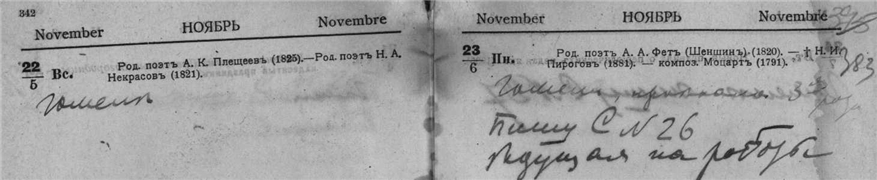 342
November НОЯБРЬ Novembre
22/5 Вс. Род. поэтъ А. К. Плещеевъ (1825).—Род. поэтъ Н. А.
Некрасовъ (1821).
Гомель
November НОЯБРЬ Novembre
23/6 Пн. Род. поэтъ А. А. Фетъ (Шеншин). (1820). — † Н. И.
Пироговъ (1881). — композ. Моцартъ (1791).
383
Гомель
Пишу С N 26
на работы